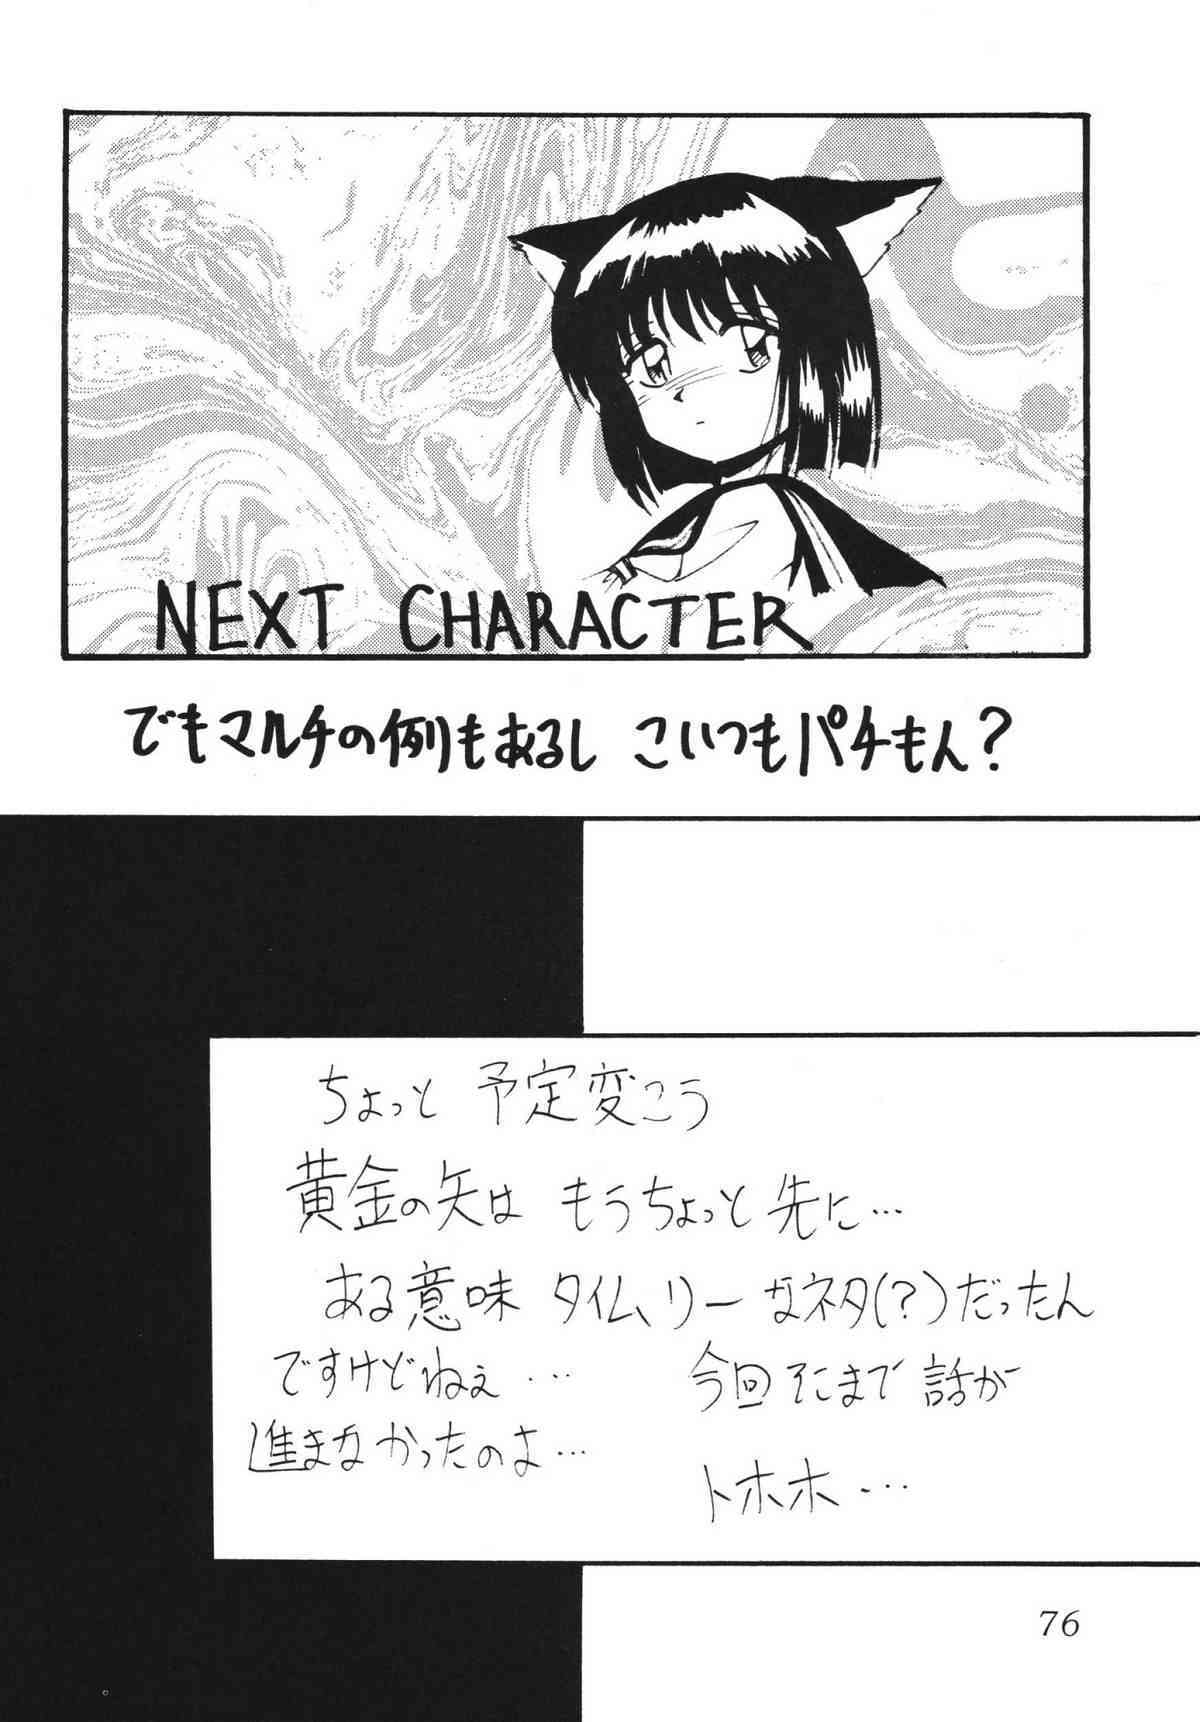 NEXT CHARACTER
でもマルチの例もあるし こいつもパチもん？
ちょっと 予定変こう
黄金の矢は もうちょっと 先に…
ある意味 タイムリーなネタ(?)だったん
ですけどねぇ… 今回そこまで 話が
進まなかったのよ…
トホホ…
76